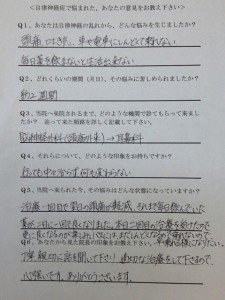 ＜自律神経症で悩まれた、あなたの意見をお教え下さい＞
Q1、あなたは自律神経の乱れから、どんな悩みを生じましたか？
頭痛、めまい、車や電車にしんどくて乗れない
毎日薬を飲まないと生活出来ない
Q2、どれくらいの期間（月日）、その悩みに苦しめられましたか？
約2週間
Q3、当院へ来院されるまで、どのような機関で診てもらって来ましたか？ 辿って来た経緯を詳しく記載して下さい。
脳神経外科（頭痛外来）→耳鼻科
Q4、それらについて、どのような印象をお持ちですか？
行っても中々治らず何も変わらない
Q5、当院へ来られた今、その悩みはどんな状態になっていますか？
治療一回目で翌日の頭痛が軽減、それまで毎日飲んでいた
薬が二日に一回で良くなりました。本日二回目の治療を受けたので
更に良くなるのが楽しみ！次にはまだしんどくなるので
Q6、あなたから見た院長の印象をお教え下さい。
丁寧、親切に話を聞いて下さり、適切な治療をして下さるので、
心強いです。ありがとうございます。